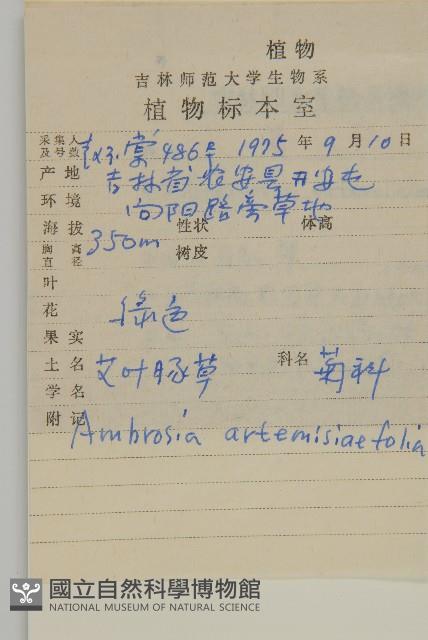 植物
吉林师范大学生物系
植物标本室
采集人及号数 486号 1975 年 9 月 10 日
产地 吉林省农安县开安屯
环境 向阳路旁草地
海拔 350m 性状 体高
胸高直径 树皮
叶
花 绿色
果实
土名 艾叶豚草 科名 菊科
学名
附记 Ambrosia artemisiaefolia
國立自然科學博物館
NATIONAL MUSEUM OF NATURAL SCIENCE